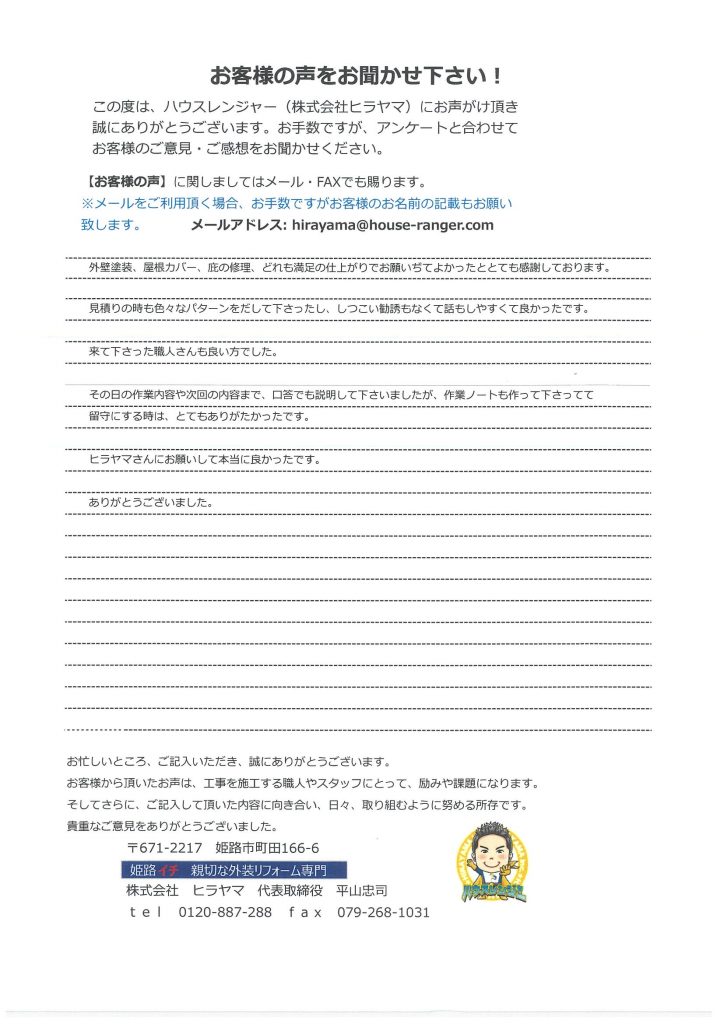 お客様の声をお聞かせ下さい！
この度は、ハウスレンジャー（株式会社ヒラヤマ）にお声がけ頂き
誠にありがとうございます。お手数ですが、アンケートと合わせて
お客様のご意見・ご感想をお聞かせください。
【お客様の声】に関しましてはメール・FAXでも賜ります。
※メールをご利用頂く場合、お手数ですがお客様のお名前の記載もお願い
致します。 メールアドレス: hirayama@house-ranger.com
外壁塗装、屋根カバー、庇の修理、どれも満足の仕上がりでお願いぢてよかったととても感謝しております。
見積りの時も色々なパターンをだして下さったし、しつこい勧誘もなくて話もしやすくて良かったです。
来て下さった職人さんも良い方でした。
その日の作業内容や次回の内容まで、口答でも説明して下さいましたが、作業ノートも作って下さってて
留守にする時は、とてもありがたかったです。
ヒラヤマさんにお願いして本当に良かったです。
ありがとうございました。
お忙しいところ、ご記入いただき、誠にありがとうございます。
お客様から頂いたお声は、工事を施工する職人やスタッフにとって、励みや課題になります。
そしてさらに、ご記入して頂いた内容に向き合い、日々、取り組むように努める所存です。
貴重なご意見をありがとうございました。
〒671-2217 姫路市町田166-6
姫路イチ 親切な外装リフォーム専門
株式会社 ヒラヤマ 代表取締役 平山忠司
ｔｅｌ 0120-887-288 ｆａｘ 079-268-1031
ハウスレンジャー